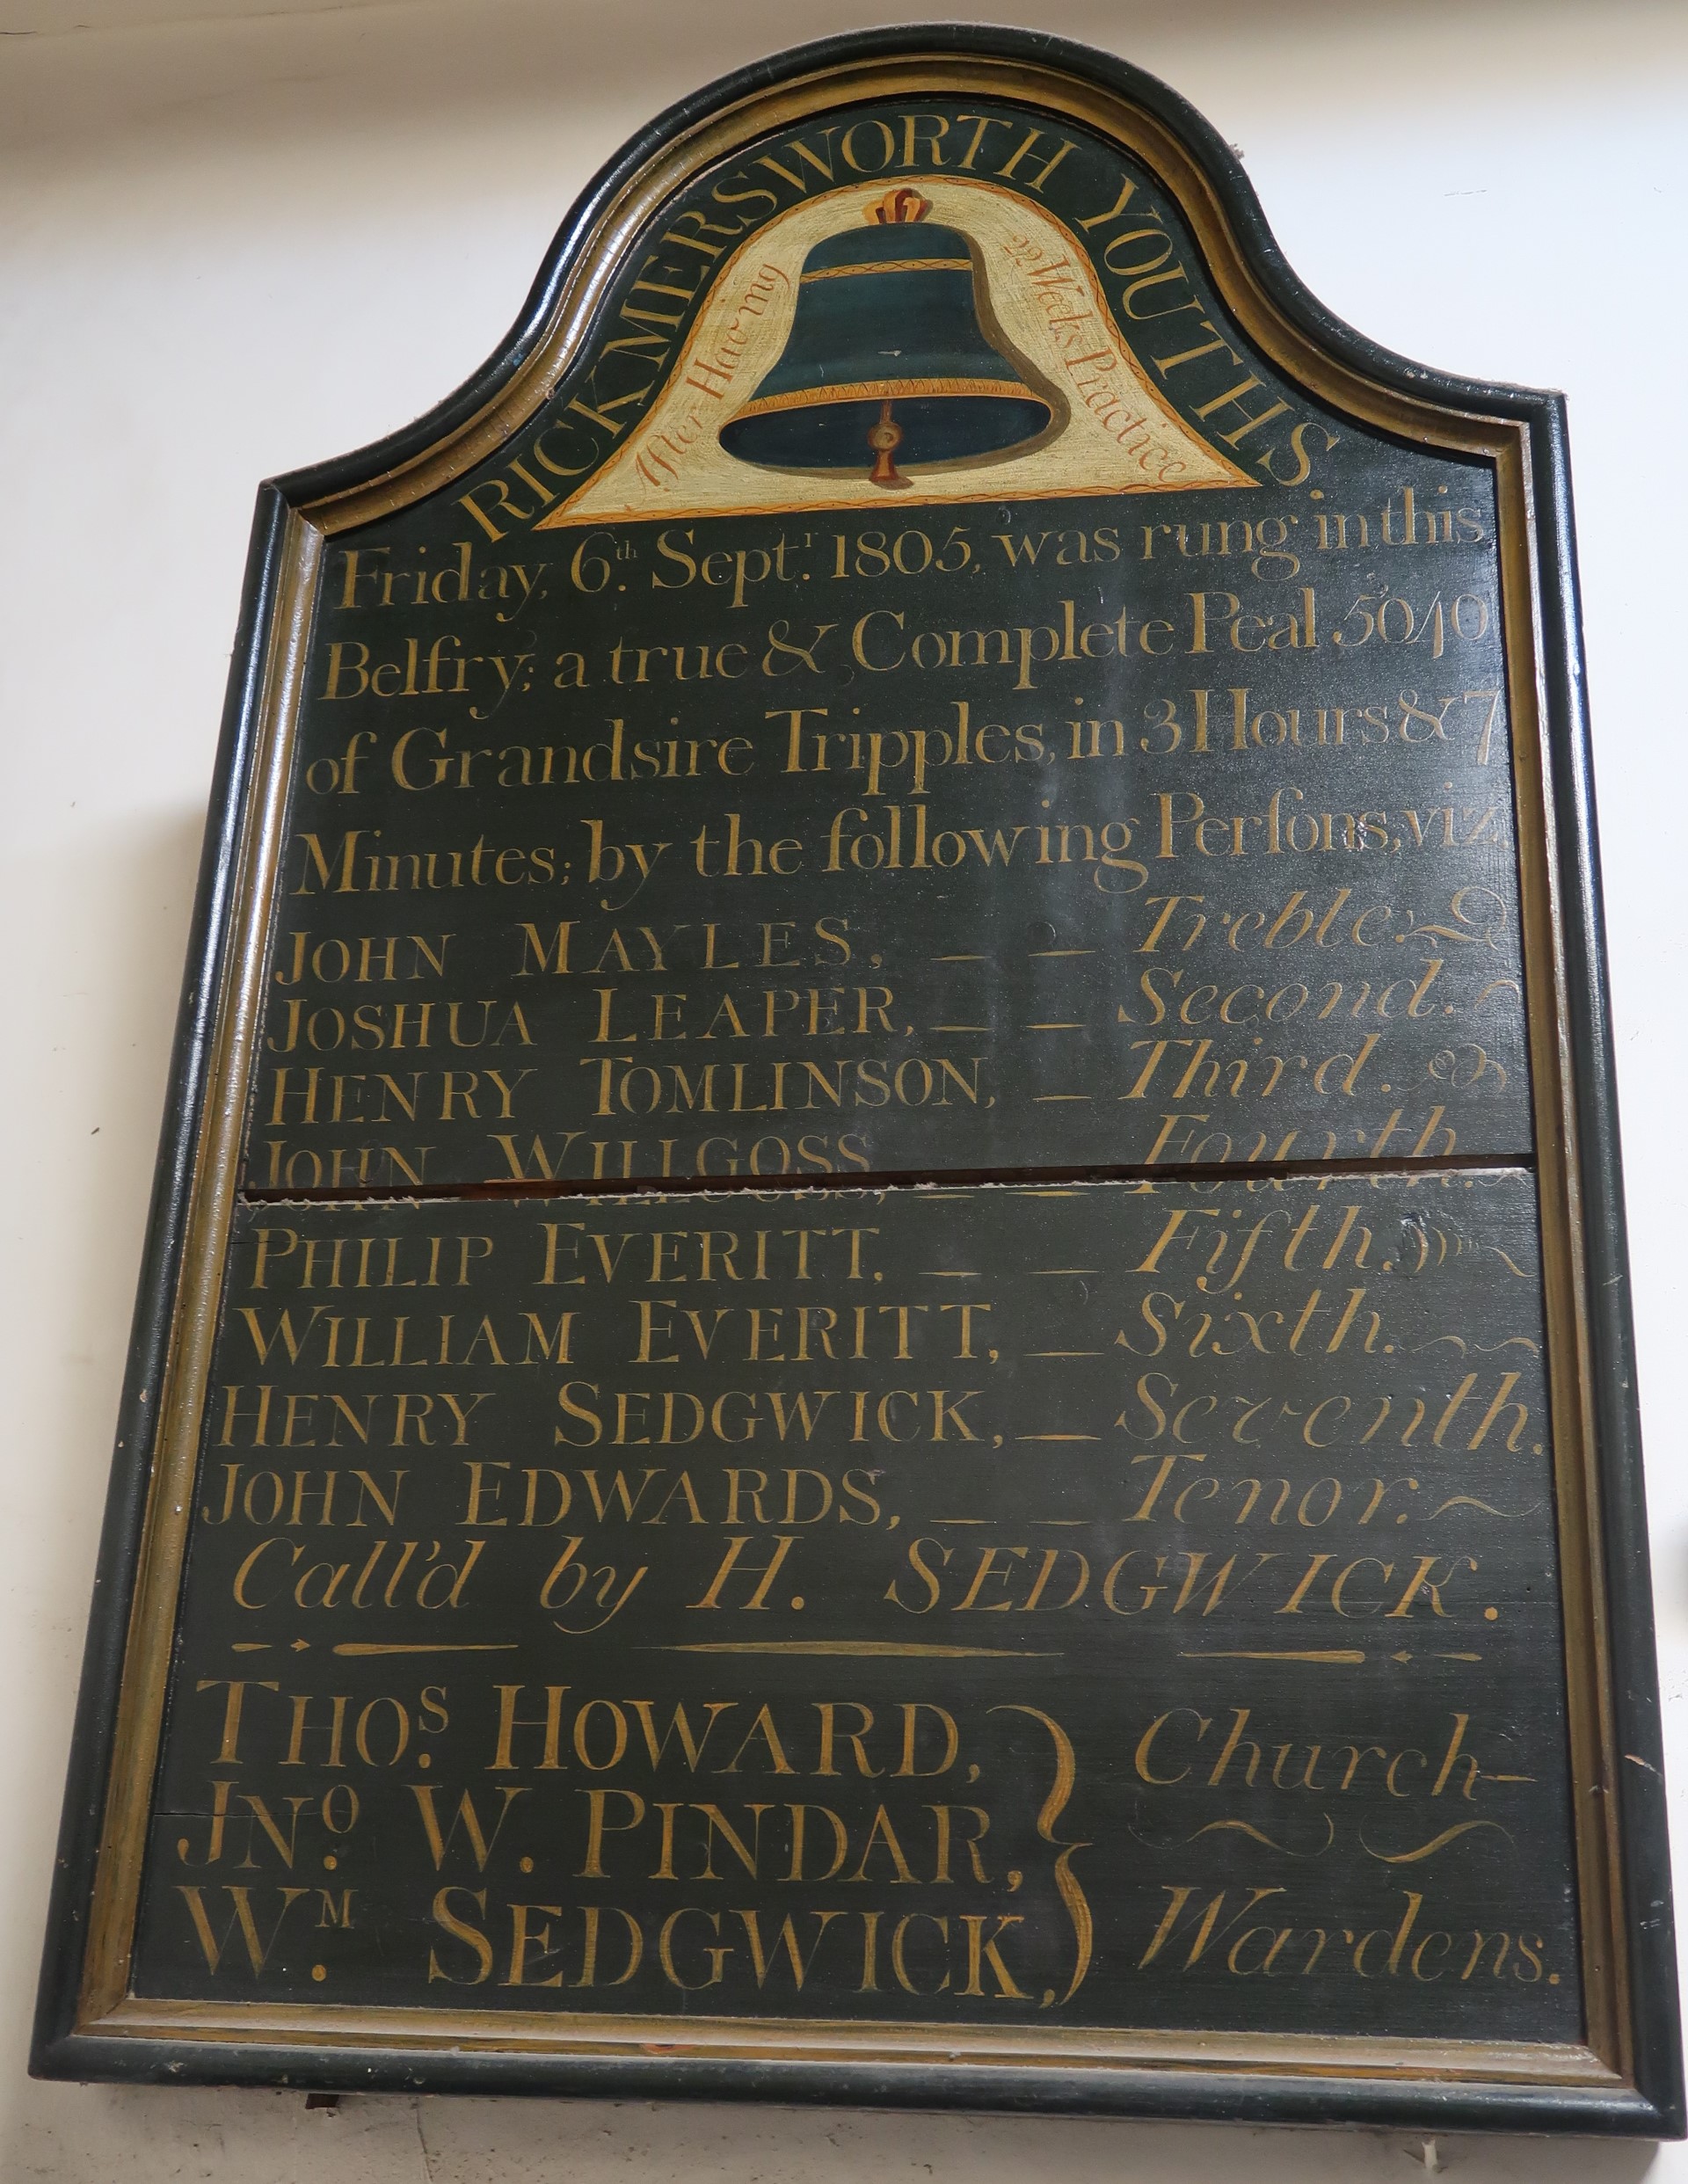 RICKMERSWORTH YOUTHS
After Having
22 Weeks Practice
Friday, 6th. Septr. 1805, was rung in this
Belfry; a true & Complete Peal 5040
of Grandsire Tripples, in 3 Hours & 7
Minutes; by the following Perſons, viz.
JOHN MAYLES, — — Treble.
JOSHUA LEAPER, — — Second.
HENRY TOMLINSON, — Third.
JOHN WILLGOSS, — — Fourth.
PHILIP EVERITT, — — Fifth.
WILLIAM EVERITT, — Sixth.
HENRY SEDGWICK, — Seventh.
JOHN EDWARDS, — — Tenor.
Call'd by H. SEDGWICK.
THOS. HOWARD, } Church-
JNO. W. PINDAR,
WM. SEDGWICK, Wardens.